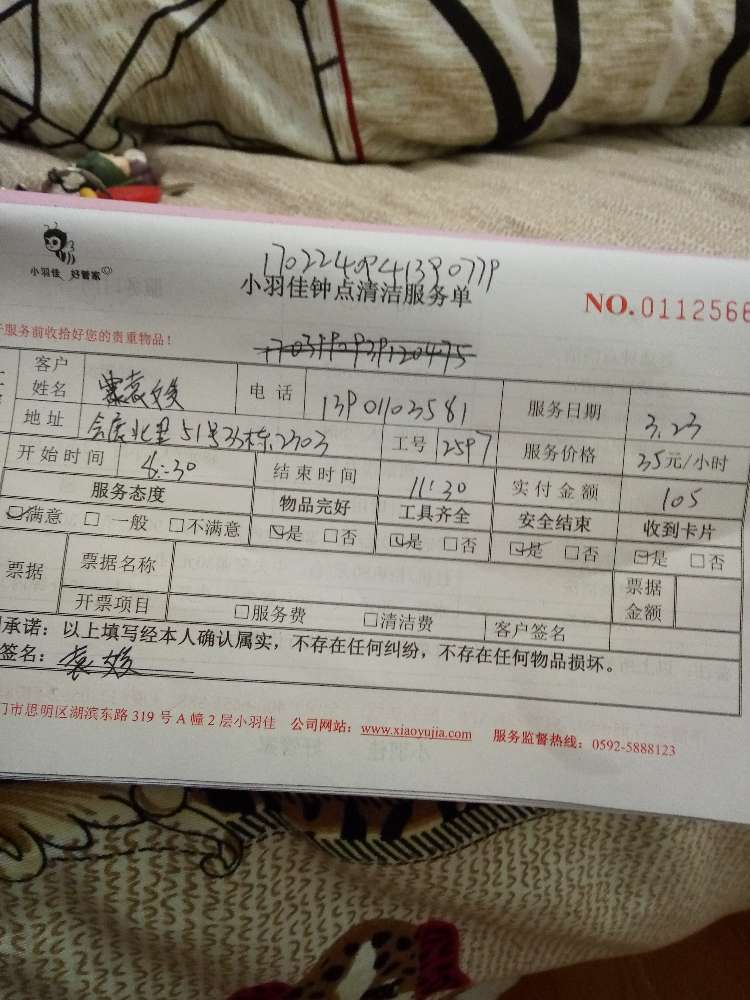 小羽佳 好管家
1702240941390779
小羽佳钟点清洁服务单
NO.0112566
服务前收拾好您的贵重物品！
客户姓名 电话 13901103581 服务日期 3.23
地址 51号 2303 工号 2597 服务价格 35元/小时
开始时间 8:30 结束时间 11:30 实付金额 105
服务态度 物品完好 工具齐全 安全结束 收到卡片
☑满意 □一般 □不满意 ☑是 □否 ☑是 □否 ☑是 □否 ☑是 □否
票据 票据名称 票据金额
开票项目 □服务费 □清洁费 客户签名
承诺：以上填写经本人确认属实，不存在任何纠纷，不存在任何物品损坏。
签名：
门市思明区湖滨东路 319 号 A 幢 2 层小羽佳 公司网站：www.xiaoyujia.com 服务监督热线：0592-5888123